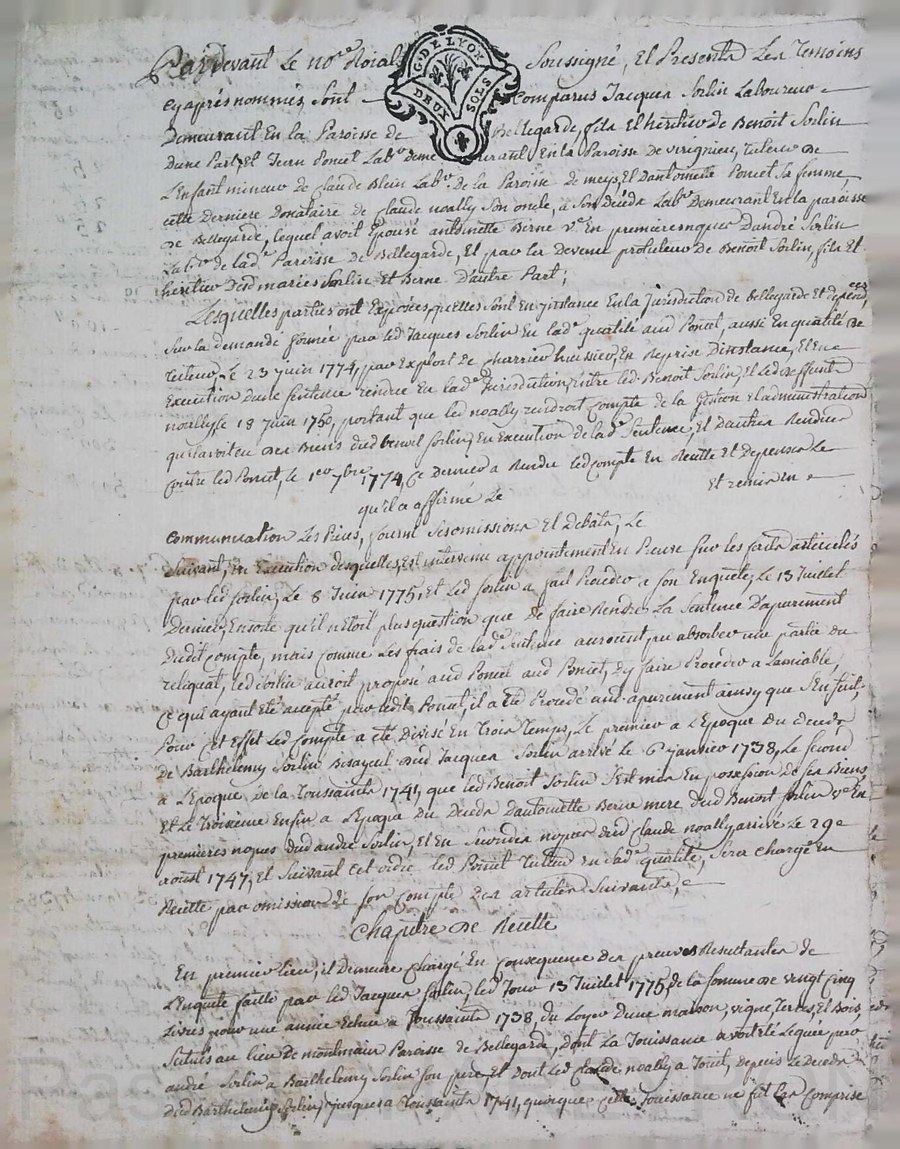 Pardevant Le no.re Roial Soussigné, Et Presents Les Temoins
G. DE LYON
DEUX SOLS
cy après nommés, sont Comparus Jacques Sorlin Laboureur
Demeurant En la Paroisse de Bellegarde, fils Et heritier de Benoit Sorlin
Dune Part, Et Jean Poncet Lab.r demeurant En la Paroisse de virignieu, tuteur de
L'Enfant mineur de Claude Blein Lab.r de la Paroisse de meys, Et Dantoinette Poncet Sa femme
cette derniere Donataire de Claude noally Son oncle, a Son Décéda Lab.r Demeurant En la paroisse
de Bellegarde, Lequel avoit Epousé antoinette Berne v.e En premieres nopces Dandré Sorlin
Lab.r de lad.e Paroisse de Bellegarde, Et par la Devenu protuteur de Benoit Sorlin, fils Et
heritier Desd mariés Sorlin Et Berne D'autre Part;
Lesquelles parties ont Exposées, quelles sont En Jnstance En la Jurisdiction de bellegarde Et dependces
Sur la demande formée par led Jacques Sorlin En lad.e qualité aud Poncet, aussi En qualité de
tuteur, Le 23 juin 1774, par Exploit de Charrier huissier, En Reprise D'instance, Et En
Execution Dune Sentence rendue En lad.e Jurisdiction, Entre led. Benoit Sorlin, Et led. deffunt
noally le 18 Juin 1750, portant que led noally rendroit Compte de la Gestion Et administration
qu'il avoit eu des Biens dud benoit Sorlin, En Execution de la d.e Sentence, Et Dautres Rendues
contre led Poncet, le 1er 7bre 1774, Ce dernier a Rendu led compte En Recette Et Depense Le
qu'il a affirmé Le Et remis En
Communication Les Pieces, fourni Ses omissions Et Debats, Le
Suivant, En Execution desquelles, Est intervenu appointement En Preuve Sur les faits articulés
par led Sorlin, Le 8 Juin 1775, Et Led Sorlin a fait Proceder a Son Enquete, Le 13 Juillet
Dernier, Ensorte qu'il n'etoit plus question que de faire Rendre La Sentence D'apurement
Dudit Compte, mais Comme Les frais de lad.e Sentence auroient pu absorber une partie du
reliquat, Led Sorlin auroit proposé aud Poncet aud Poncet, Dy faire Proceder a Lamiable,
Ce qui ayant Eté accepté par ledit Poncet, il a Eté Procédé aud apurement ainsy que S'En Suit,
Pour Cet Effet Led Compte a eté divisé En Trois Temps, Le premier a L'Epoque du deceds
de Barthelemy Sorlin Bisayeul dud Jacques Sorlin arrivé Le 6 janvier 1738, Le Second
a L'Epoque de la Toussaints 1741, que led Benoit Sorlin S'est mis En possession de Ses Biens
Et Le Troisieme Enfin a L'Epoque du Déceds Dantoinette Berne mere dud Benoit Sorlin v.e En
premieres nopces dud andré Sorlin, Et En Secondes nopces dud Claude noally arrivé Le 29e
aoust 1747, Et Suivant Cet ordre led Poncet Tuteur En lad.e qualité, Sera Chargé En
Recette par omission de Son Compte des articles Suivants;
Chapitre de Recette
En premier Lieu, il Demeure Chargé En Consequence des preuves Resultantes de
L'Enquete faitte par led Jacques Sorlin, led Jour 13 Juillet 1775, de la Somme de vingt Cinq
Livres pour une année Echue a Toussaints 1738 du Loyer Dune maison, vigne, Terres, Et Bois
Situés au lieu de montmain Paroisse de Bellegarde, dont La Jouissance avoit eté Leguée par
andré Sorlin a Barthelemy Sorlin Son pere, Et dont led Claude noally a Jouit, depuis Le Deceds
dud Barthelemy Sorlin, jusques a Toussaints 1741, quoique Cette Jouissance ne fut Pas Comprise